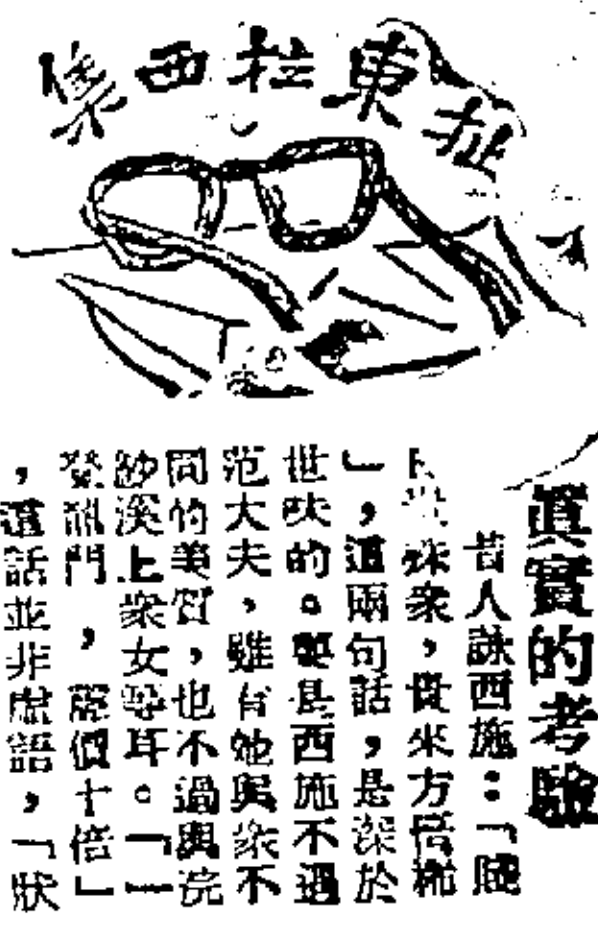 扯東拉西集
眞實的考驗
昔人詠西施：「賤
日豈殊衆，貴來方悟稀
」，這兩句話，是深於
世味的。要是西施不遇
范大夫，雖有她與衆不
同的美質，也不過與浣
紗溪上衆女等耳。「一
登龍門，聲價十倍」
，這話並非虛語，「狀